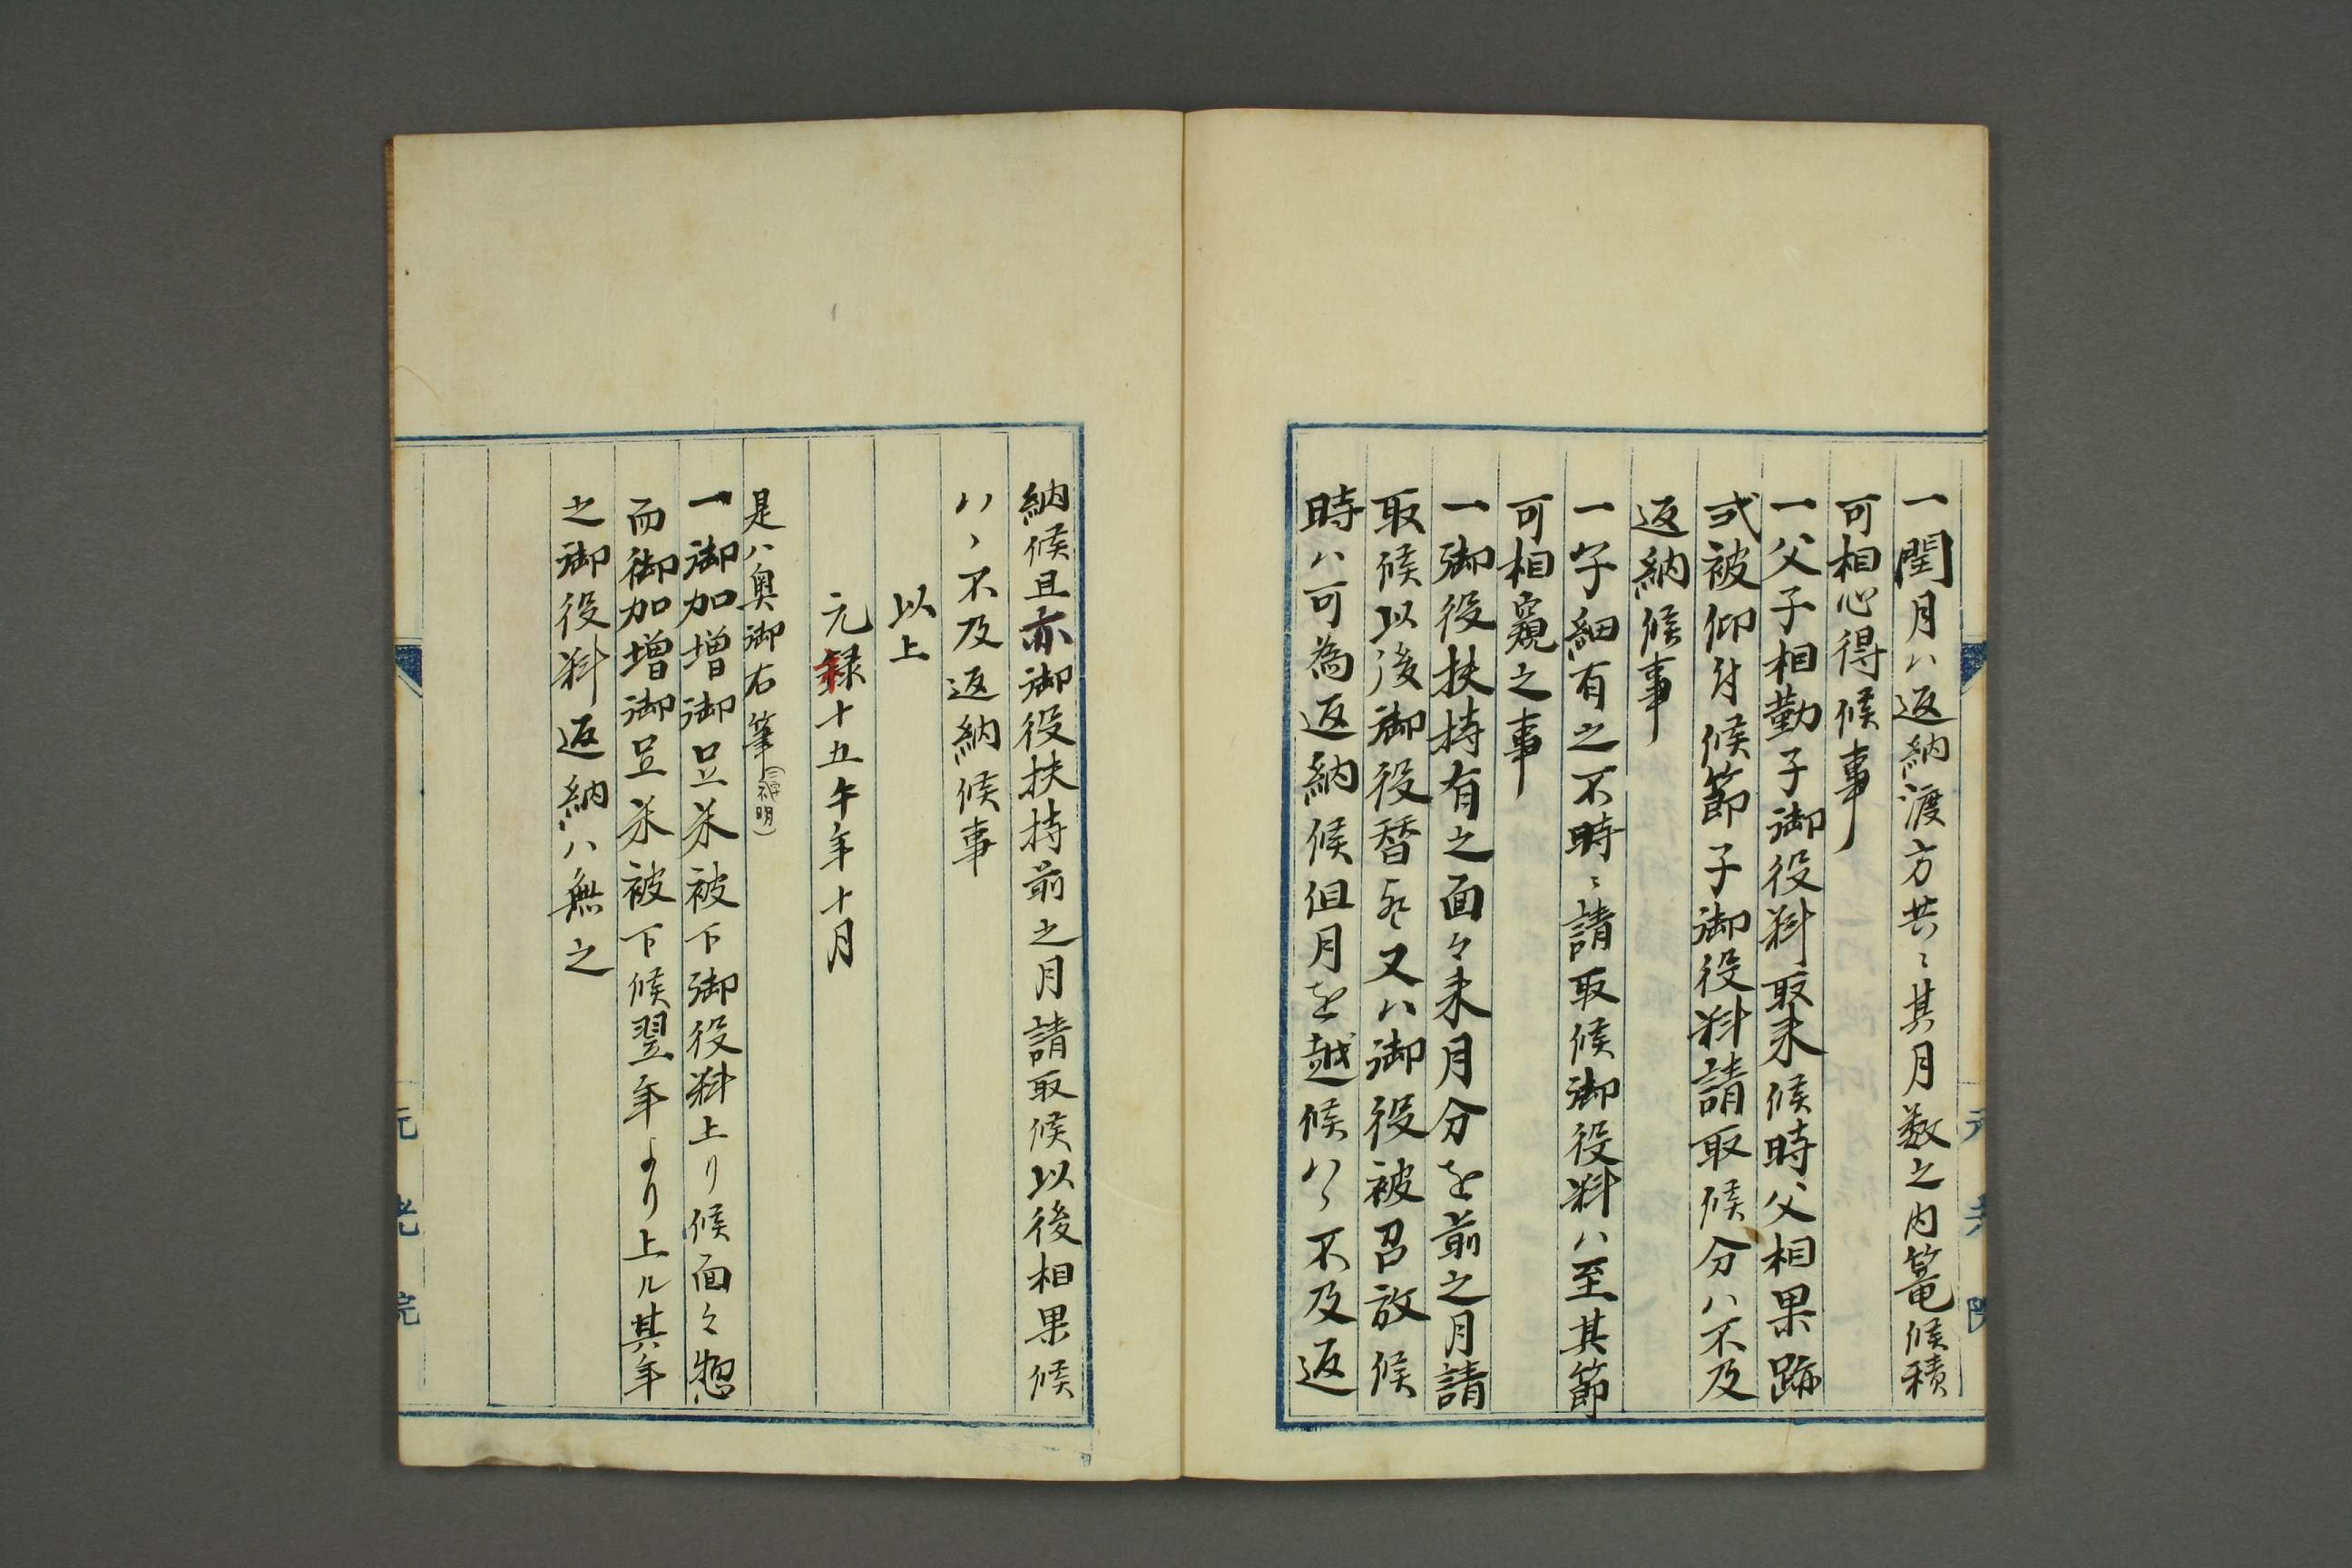 一閏月ハ返納渡方共ニ其月数之内篭候積
可相心得候事
一父子相勤子御役料取来候時父相果跡
式被仰付候節子御役料請取候分ハ不及
返納候事
一子細有之不時ニ請取候御役料ハ至其節
可相窺之事
一御役扶持有之面々来月分を前之月請
取候以後御役替歟又ハ御役被召放候
時ハ可為返納候但月を越候ハヽ不及返
納候且亦御役扶持前之月請取候以後相果候
ハヽ不及返納候事
以上
元禄十五午年十月
是ハ奥御右筆
一御加増御足米被下御役料上り候面々惣
而御加増御足米被下候翌年より上ル其年
之御役料返納ハ無之
元老院
元老院